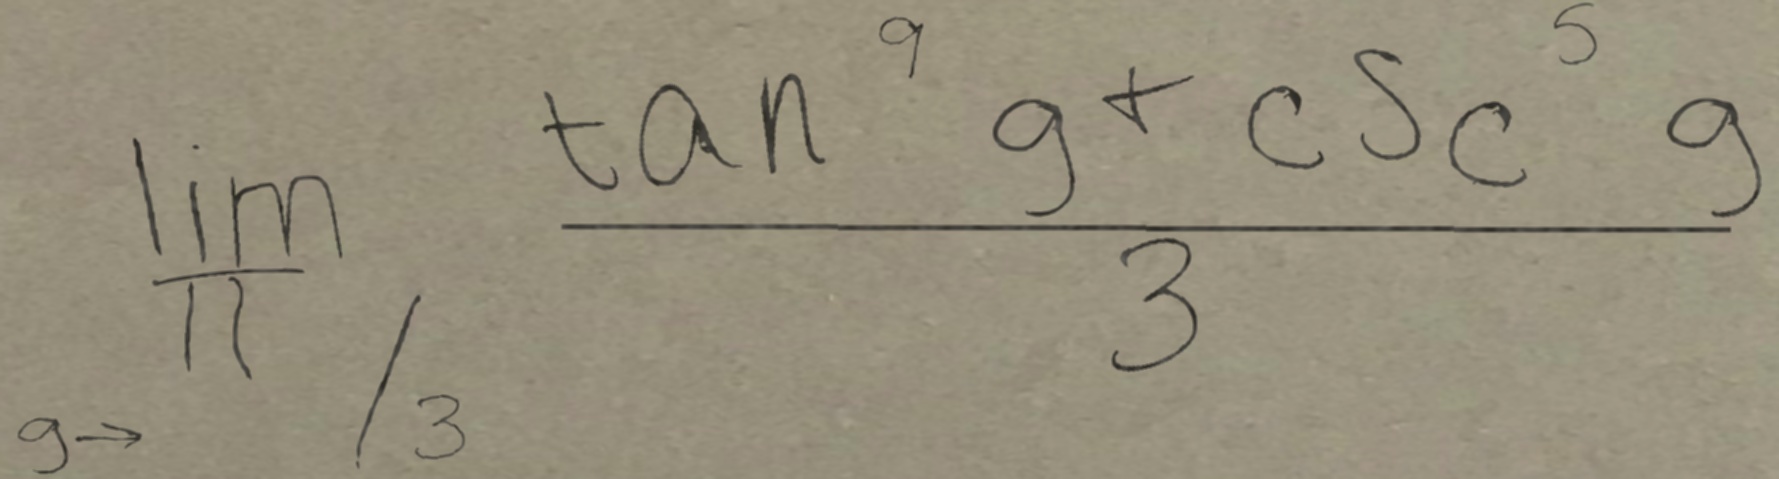 \lim_{g \to \pi/3} \frac{\tan^9 g + \csc^5 g}{3}